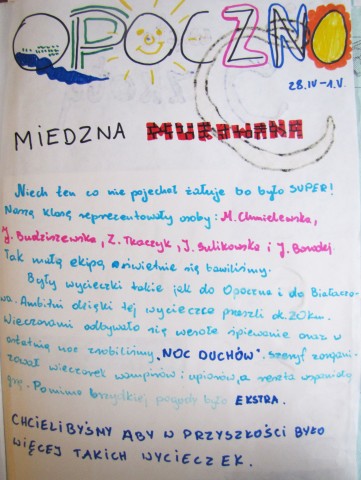 OPOCZNO
28.IV-1.V.
MIEDZNA MUROWANA
Niech ten co nie pojechał żałuje bo było SUPER!
Naszą klasę reprezentowały osoby: M. Chmielewska,
J. Budziszewska, Z. Tkaczyk, J. Sulikowska i J.
Tak małą ekipą świetnie się bawiliśmy.
Były wycieczki takie jak do Opoczna i do Białaczo-
wa. Ambitni dzięki tej wycieczce przeszli ok. 20 km.
Wieczorami odbywało się wesołe śpiewanie oraz w
ostatnią noc zrobiliśmy „NOC DUCHÓW". szeryf zorgani-
zował wieczorek wampirów i upiorów, a reszta wspaniałą
grę. Pomimo brzydkiej pogody było EKSTRA.
CHCIELIBYŚMY ABY W PRZYSZŁOŚCI BYŁO
WIĘCEJ TAKICH WYCIECZEK.